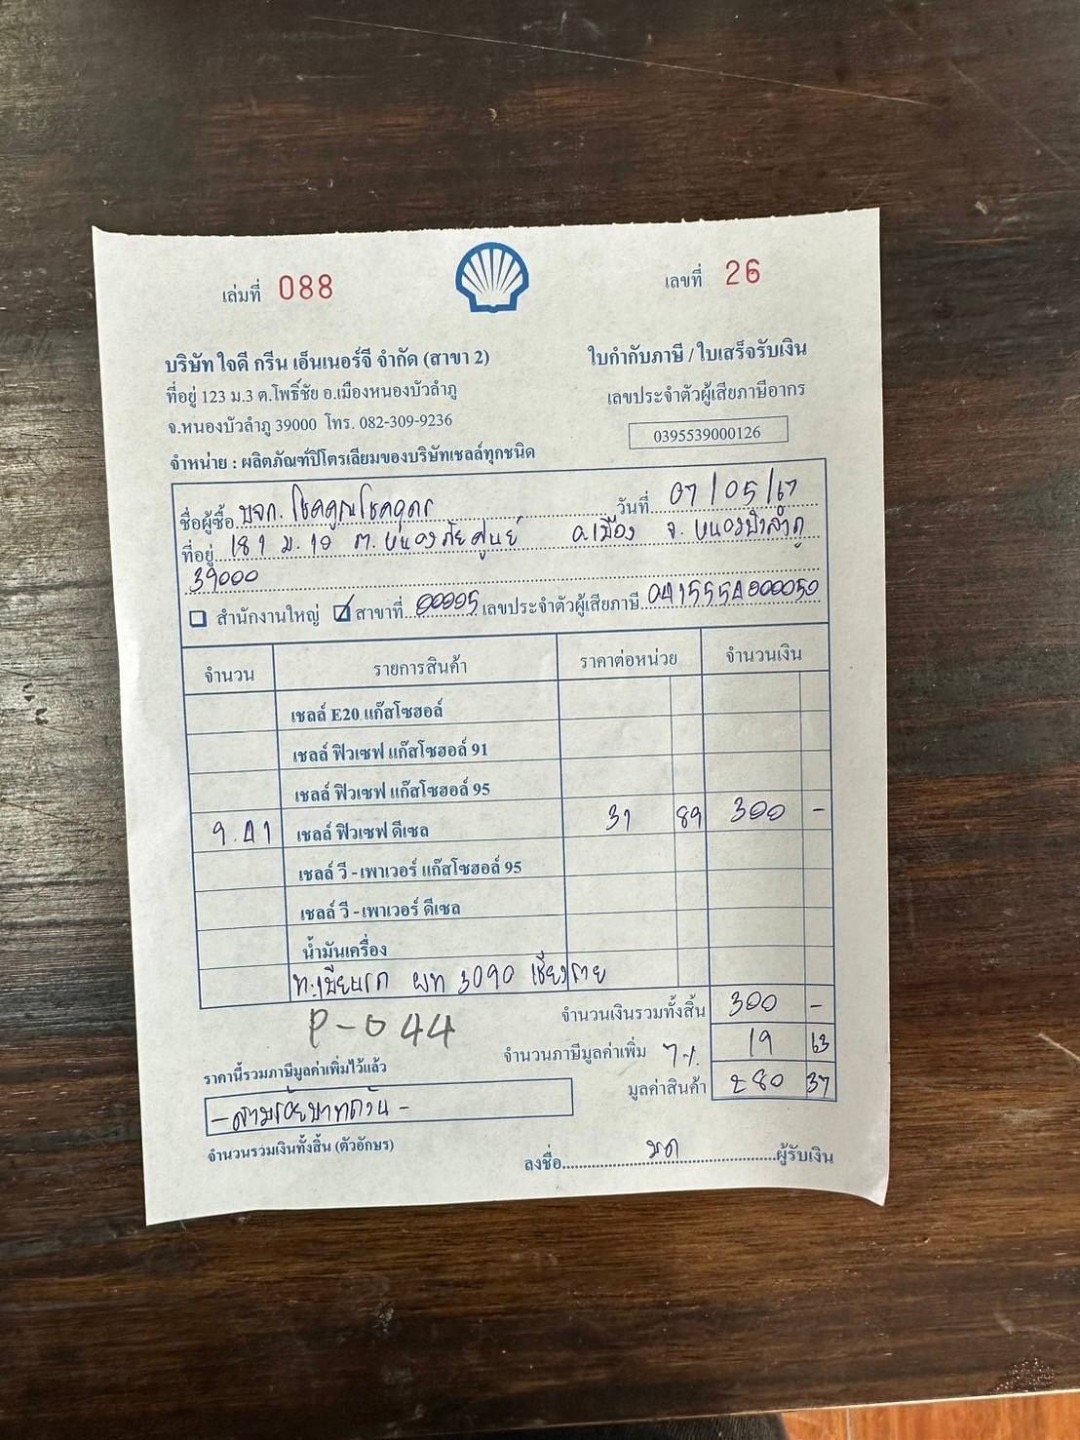 เล่มที่ 088
เลขที่ 26
บริษัท ใจดี กรีน เอ็นเนอร์จี จำกัด (สาขา 2)
ใบกำกับภาษี / ใบเสร็จรับเงิน
ที่อยู่ 123 ม.3 ต.โพธิ์ชัย อ.เมืองหนองบัวลำภู
เลขประจำตัวผู้เสียภาษีอากร
จ.หนองบัวลำภู 39000 โทร. 082-309-9236
0395539000126
จำหน่าย : ผลิตภัณฑ์ปิโตรเลียมของบริษัทเชลล์ทุกชนิด
ชื่อผู้ซื้อ บจก. โชคคูณโชคอุดร วันที่ 07/05/67
ที่อยู่ 181 ม. 10 ต. หนองภัยศูนย์ อ.เมือง จ. หนองบัวลำภู
39000
สำนักงานใหญ่ สาขาที่ 00005 เลขประจำตัวผู้เสียภาษี 0415554000050
จำนวน รายการสินค้า ราคาต่อหน่วย จำนวนเงิน
เชลล์ E20 แก๊สโซฮอล์
เชลล์ ฟิวเซฟ แก๊สโซฮอล์ 91
เชลล์ ฟิวเซฟ แก๊สโซฮอล์ 95
9.41 เชลล์ ฟิวเซฟ ดีเซล 31 89 300 -
เชลล์ วี - เพาเวอร์ แก๊สโซฮอล์ 95
เชลล์ วี - เพาเวอร์ ดีเซล
น้ำมันเครื่อง
ทะเบียนรถ ผท 3090 เชียงราย
จำนวนเงินรวมทั้งสิ้น 300 -
P-044
จำนวนภาษีมูลค่าเพิ่ม 7% 19 63
ราคานี้รวมภาษีมูลค่าเพิ่มไว้แล้ว
มูลค่าสินค้า 280 37
- สามร้อยบาทถ้วน -
จำนวนรวมเงินทั้งสิ้น (ตัวอักษร)
ลงชื่อ มด ผู้รับเงิน